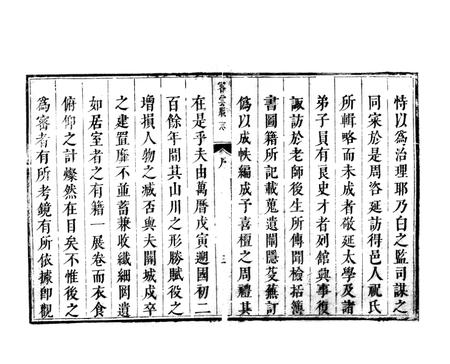 恃以爲治理耶乃白之監司謀之
同寀於是周咨延訪得邑人祝氏
所輯略而未成者敬延太學及諸
弟子員有良史才者列館典事復
諏訪於老師後生所傳聞檢括簿
書圖籍所記載蒐遺闡隱芟蕪訂
僞以成帙編成予喜檀之周禮其
密雲縣志
序
二
在是乎夫由萬曆戊寅遡國初二
百餘年間其山川之形勝賦役之
增損人物之臧否與夫關城戍卒
之建置靡不並蓄兼收纖細罔遺
如居室者之有籍一展卷而衣食
俯仰之計燦然在目矣不惟後之
爲密者有所考鏡有所依據卽觀